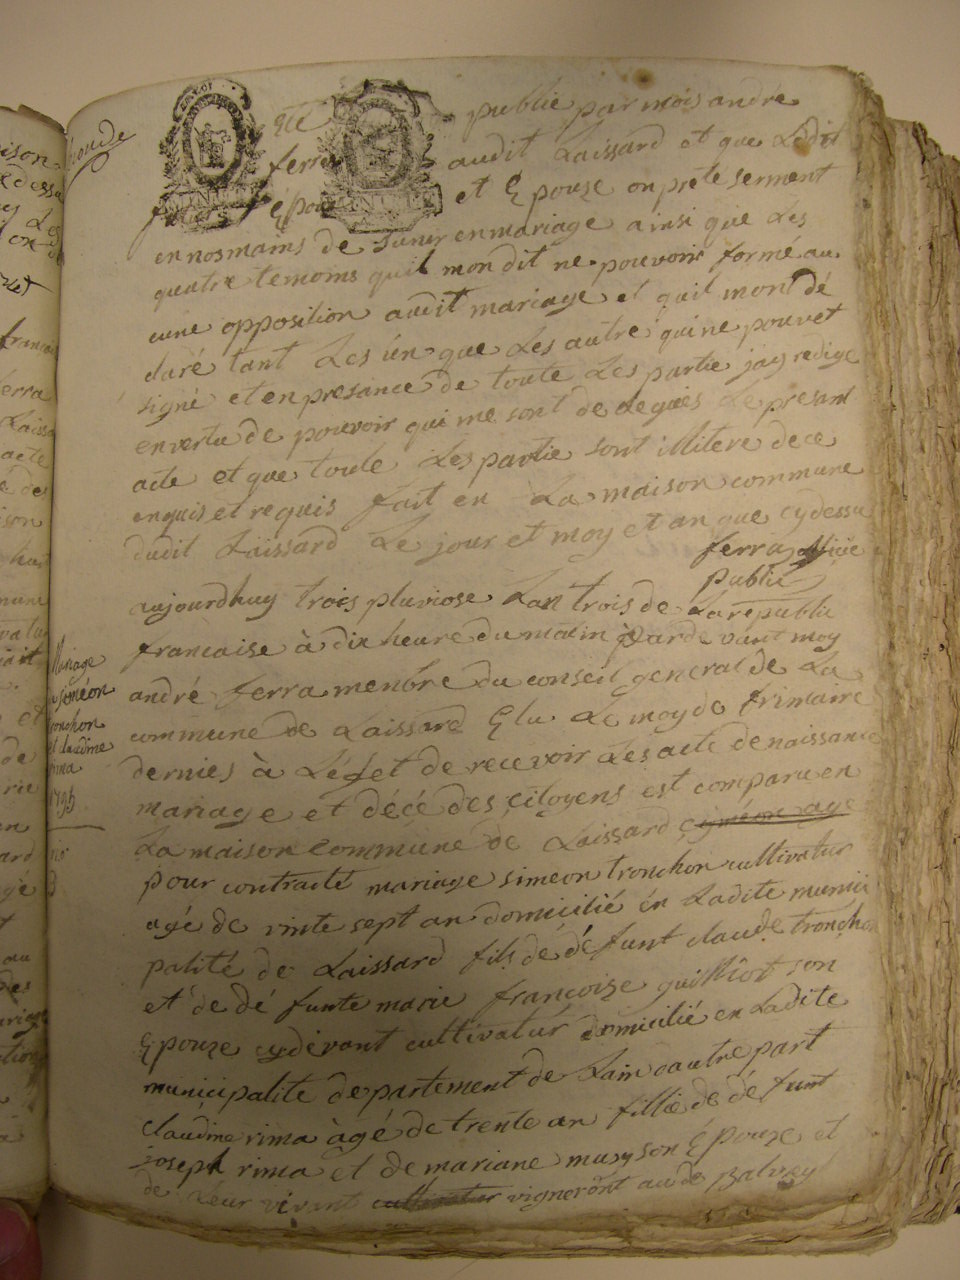 été publié par mois andré
ferra audit Laissard et que Ledit
épou et Epouze on prete serment
en nos mains de sunir en mariage ainsi que Les
quatre temoins quil mon dit ne pouvoir formé au
cune opposition audit mariage et quil mont dé
claré tant Les ùn que Les autre quine pouvet
signé et en presance de toute Les partie jay redige
en vertu de pouvoir qui me sont de Legués Le presant
acte et que toute Les partie sont illitere de ce
enquis et requis fait en La maison commune
dudit Laissard Le jour et moy et an que cy dessu
ferra officie
public
aujourdhuy trois pluviose Lan trois de La republi
francaise à dix heure du matin parde vant moy
andré ferra menbre du conseil general de La
commune de Laissard Elu Le moy de frimaire
dernies à Léfet de recevoir Les acte de naissance
mariage et décé des çitoyens est comparu en
La maison commune de Laissard çyméon age
pour contracté mariage simeon tronchon cultivatur
agé de vinte sept an domicilié en Ladite munici
palité de Laissard fils de dé funt claude tronchon
et de dé funte marie françoize guilliot son
Epouze cydevant cultivatur domicilié en Ladite
municipalite departement de Lain dautre part
claudine rima àgé de trente an fillie de dé funt
joseph rima et de mariane muy son Epouze et
de Leur vivant cultivatur vigneront au de Balvey
Mariage
Siméon
tronchon
et claudine
rima
1795